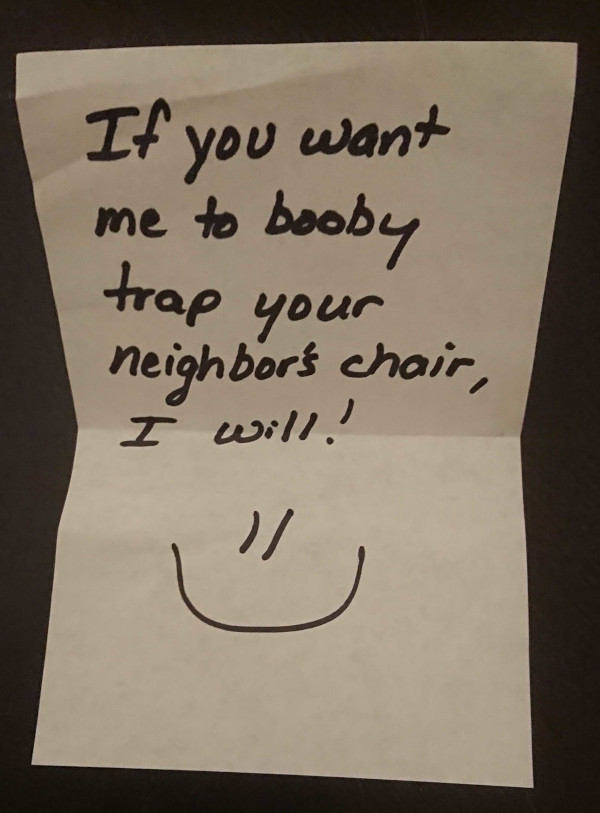 If you want
me to booby
trap your
neighbor's chair,
I will!